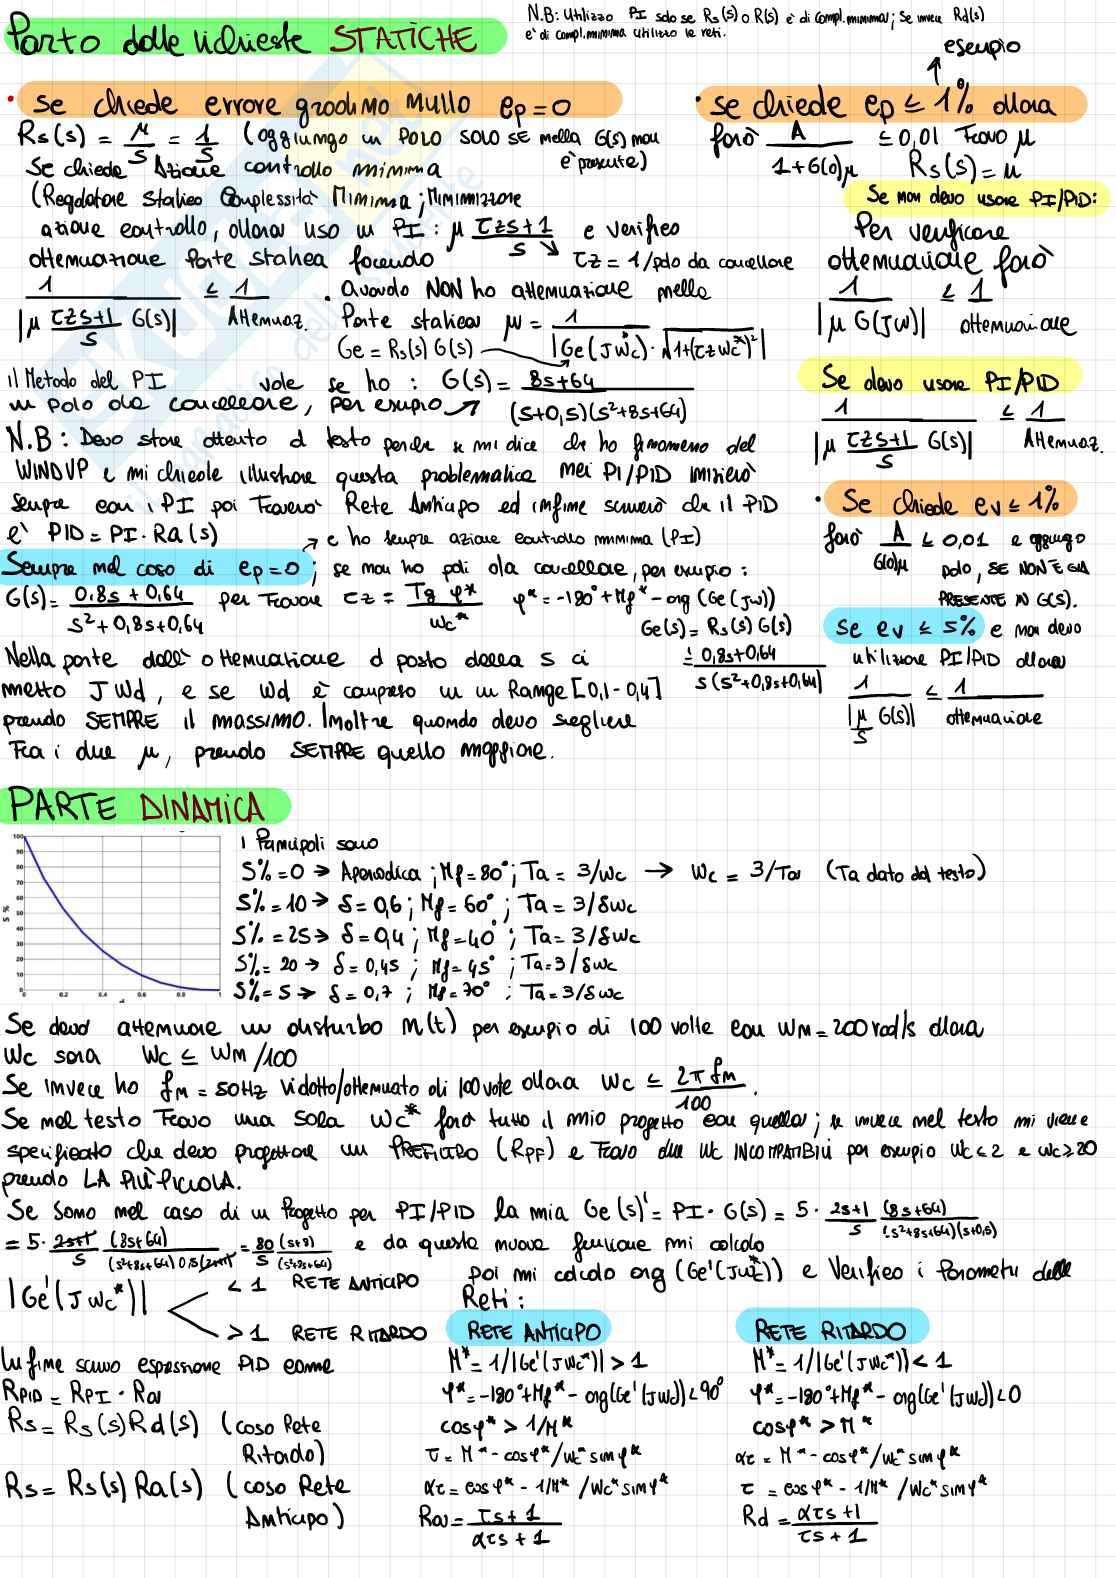 Parto dalle richieste STATICHE
N.B: Utilizzo PI solo se Rs(s) o R(s) è di compl. minima; Se invece Rd(s)
è di compl. minima utilizzo le reti.
• Se chiede errore gradino Nullo ep=0
Rs(s) = μ/s = 1/s (aggiungo un POLO SOLO SE nella G(s) non
è presente)
Se chiede Azione controllo minima
(Regolatore Statico Complessità Minima; Minimizzare
azione controllo, allora uso un PI: μ (τzs+1)/s e verifico
τz = 1/polo da cancellare
attenuazione Parte statica facendo
1/|μ (τzs+1)/s G(s)| ≤ 1/Attenuaz.
• Quando NON ho attenuazione nella
Parte statica μ = 1/(|Ge(Jωc*)|·√(1+(τzωc*)²)|
Ge = Rs(s) G(s)
il Metodo del PI vale se ho: G(s) = (8s+64)/((s+0,5)(s²+8s+64))
un polo da cancellare, per esempio
N.B: Devo stare attento al testo perché se mi dice che ho fenomeno del
WINDUP e mi chiede illustrare questa problematica nei PI/PID inizierò
sempre con i PI poi Troverò Rete Anticipo ed infine scriverò che il PID
è PID = PI·Ra(s)
→ e ho sempre azione controllo minima (PI)
Sempre nel caso di ep=0; se non ho poli da cancellare, per esempio:
G(s) = (0,8s+0,64)/(s²+0,8s+0,64) per Trovare τz = Tg φ*/ωc* φ* = -180°+Mφ* - arg(Ge(Jω))
Ge(s) = Rs(s) G(s)
= (0,8s+0,64)/(s(s²+0,8s+0,64))
Nella parte dell'attenuazione al posto della s ci
metto Jωd, e se ωd è compreso in un Range [0,1-0,4]
prendo SEMPRE il massimo. Inoltre quando devo scegliere
Fra i due μ, prendo SEMPRE quello maggiore.
esempio
• se chiede ep ≤ 1% allora
farò A/(1+G(0)μ) ≤ 0,01 Trovo μ
Rs(s) = μ
Se non devo usare PI/PID:
Per verificare
attenuazione farò
1/|μ G(Jω)| ≤ 1/attenuazione
Se devo usare PI/PID
1/|μ (τzs+1)/s G(s)| ≤ 1/Attenuaz.
• Se chiede ev ≤ 1%
farò A/G(0)μ ≤ 0,01 e aggiungo
polo, SE NON È GIA
PRESENTE IN G(s).
Se ev ≤ 5% e non devo
utilizzare PI/PID allora
1/|μ/s G(s)| ≤ 1/attenuazione
PARTE DINAMICA
S %
100
90
80
70
60
50
40
30
20
10
0
0 0.2 0.4 0.6 0.8 1
i Principali sono
S%=0 → Aperiodica; Mφ=80°; Ta = 3/ωc → ωc = 3/Ta (Ta dato dal testo)
S%=10 → δ = 0,6; Mφ=60°; Ta = 3/δωc
S%=25 → δ = 0,4; Mφ=40°; Ta = 3/δωc
S%=20 → δ = 0,45; Mφ=45°; Ta=3/δωc
S%=5 → δ = 0,7; Mφ=70°; Ta=3/δωc
Se devo attenuare un disturbo n(t) per esempio di 100 volte con ωn=200rad/s allora
ωc sarà ωc ≤ ωn/100
Se invece ho fn = 50Hz ridotto/attenuato di 100 volte allora ωc ≤ 2π fn/100.
Se nel testo Trovo una sola ωc* farò tutto il mio progetto con quella; se invece nel testo mi viene
specificato che devo progettare un PREFILTRO (Rpf) e Trovo due ωc INCOMPATIBILI per esempio ωc<2 e ωc≥20
prendo LA PIÙ PICCOLA.
Se Sono nel caso di un Progetto per PI/PID la mia Ge(s)' = PI·G(s) = 5· (2s+1)/s (8s+64)/((s²+8s+64)(s+0,5))
= 5· (2s+1)/s (8s+64)/((s²+8s+64) 0,5(2s+1)) = 80/s (s+8)/(s²+8s+64) e da questa nuova funzione mi calcolo
|Ge'(Jωc*)| < 1 RETE ANTICIPO
> 1 RETE RITARDO
poi mi calcolo arg(Ge'(Jωc*)) e Verifico i Parametri delle
Reti:
Infine scrivo espressione PID come
RPID = RPI · Ra
Rs = Rs(s)Rd(s) (caso Rete
Ritardo)
Rs = Rs(s) Ra(s) (caso Rete
Anticipo)
RETE ANTICIPO
M* = 1/|Ge'(Jωc*)| > 1
φ* = -180°+Mφ* - arg(Ge'(Jωc)) < 90°
cosφ* > 1/M*
τ = M* - cosφ*/ωc* sinφ*
ατ = cosφ* - 1/M* /ωc* sinφ*
Ra = (τs+1)/(ατs+1)
RETE RITARDO
M* = 1/|Ge'(Jωc*)| < 1
φ* = -180°+Mφ* - arg(Ge'(Jωc)) < 0
cosφ* > M*
ατ = M* - cosφ*/ωc* sinφ*
τ = cosφ* - 1/M* /ωc* sinφ*
Rd = (ατs+1)/(τs+1)